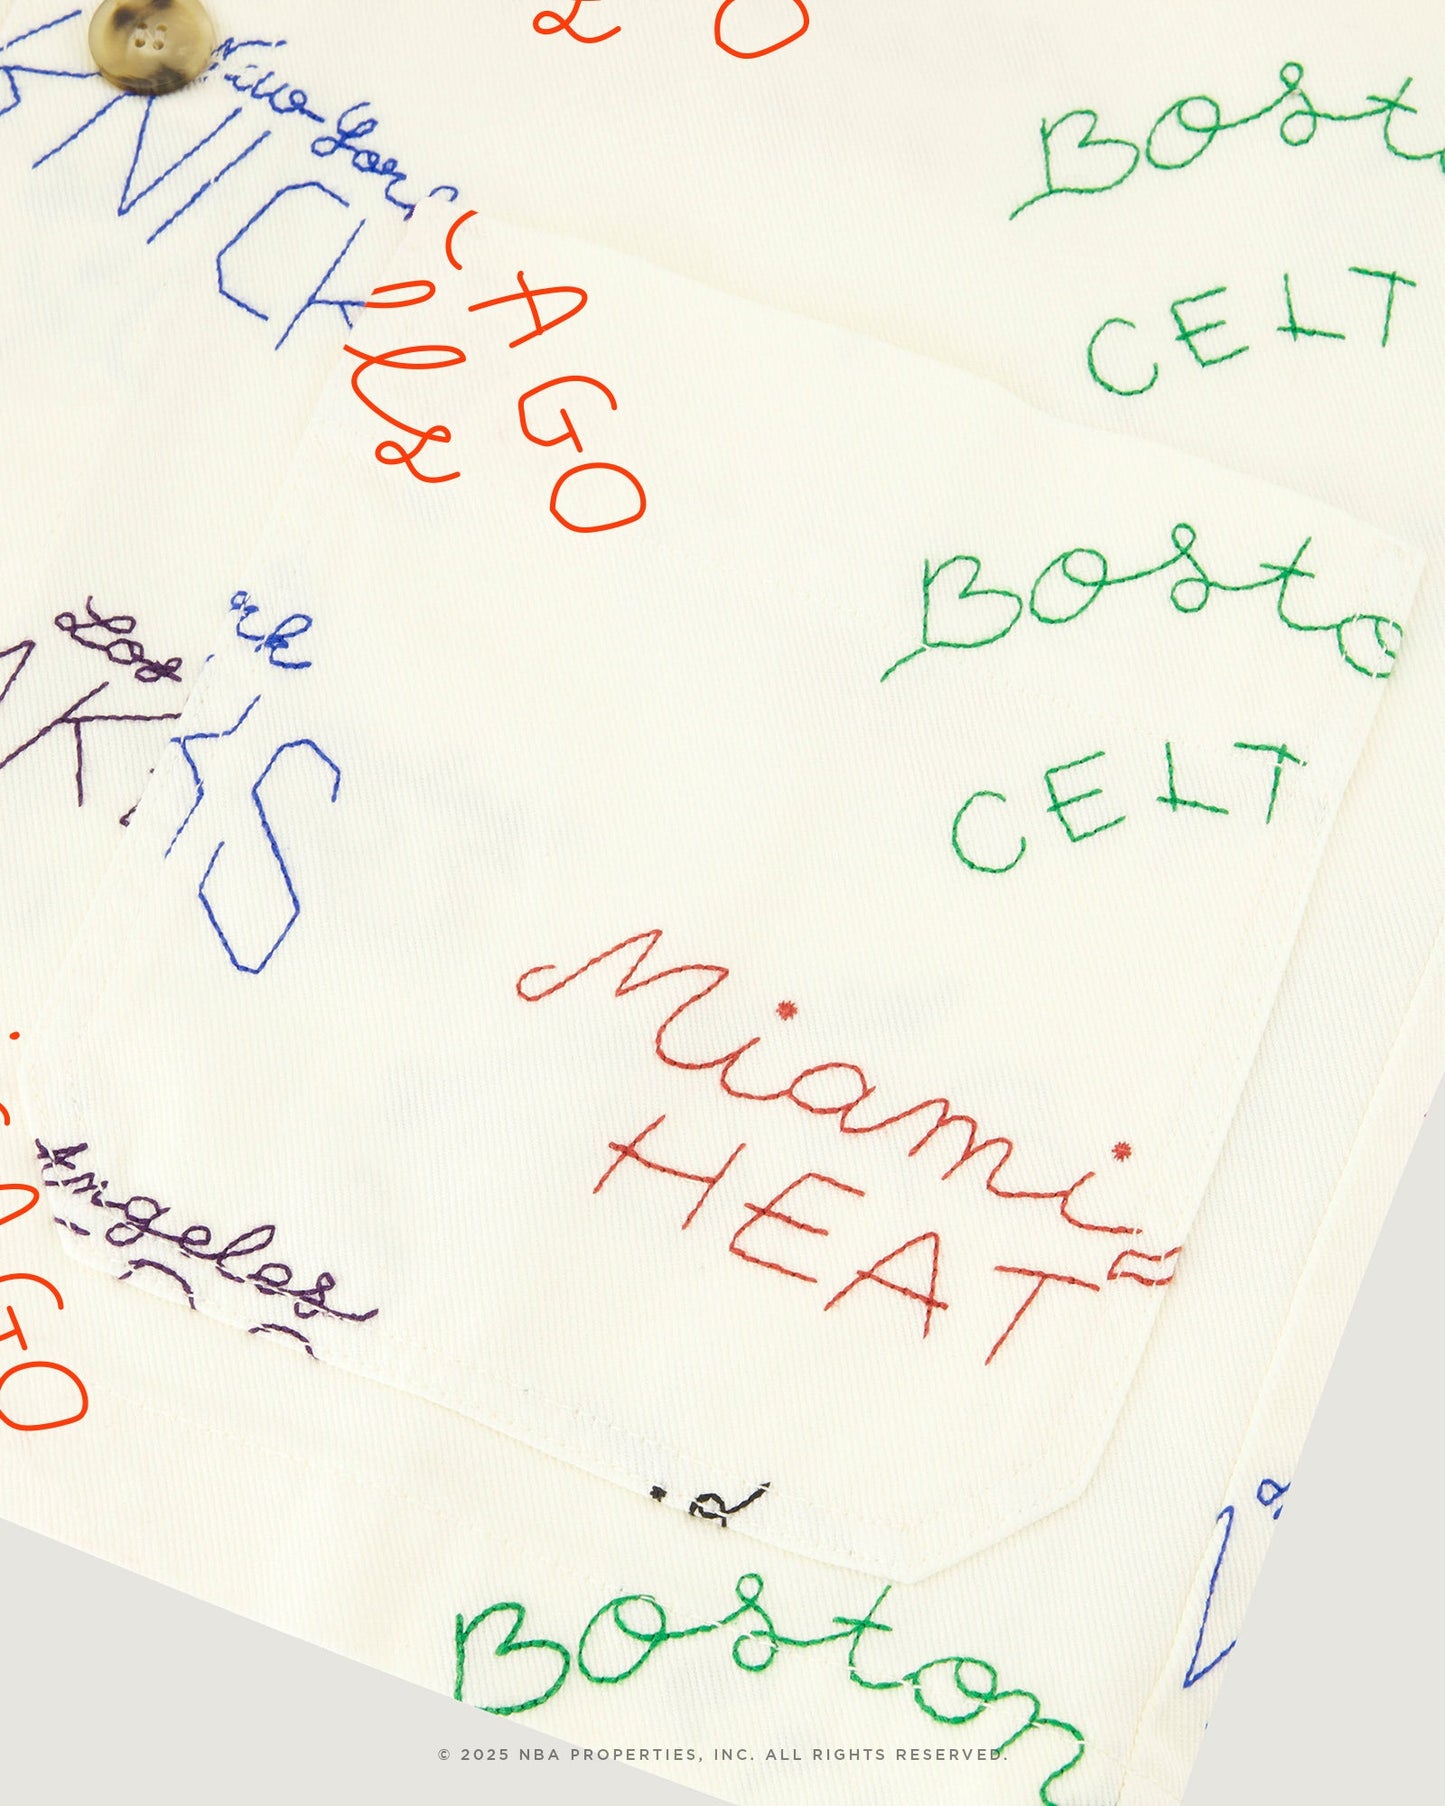 New York
KNICK
Bosto
CELT
AGO
lls
Bosto
CELT
Los
ork
KS
Miami
HEAT
Angeles
AGO
Boston
© 2025 NBA PROPERTIES, INC. ALL RIGHTS RESERVED.